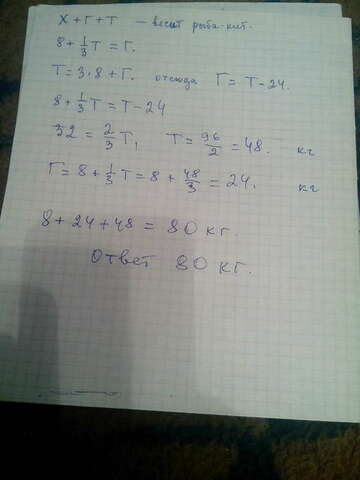 Х + Г + Т — весит рыба-кит.
8 + 1/3 Т = Г.
Т = 3·8 + Г. отсюда Г = Т - 24.
8 + 1/3 Т = Т - 24
32 = 2/3 Т, Т = 96/2 = 48. кг
Г = 8 + 1/3 Т = 8 + 48/3 = 24. кг
8 + 24 + 48 = 80 кг.
Ответ 80 кг.